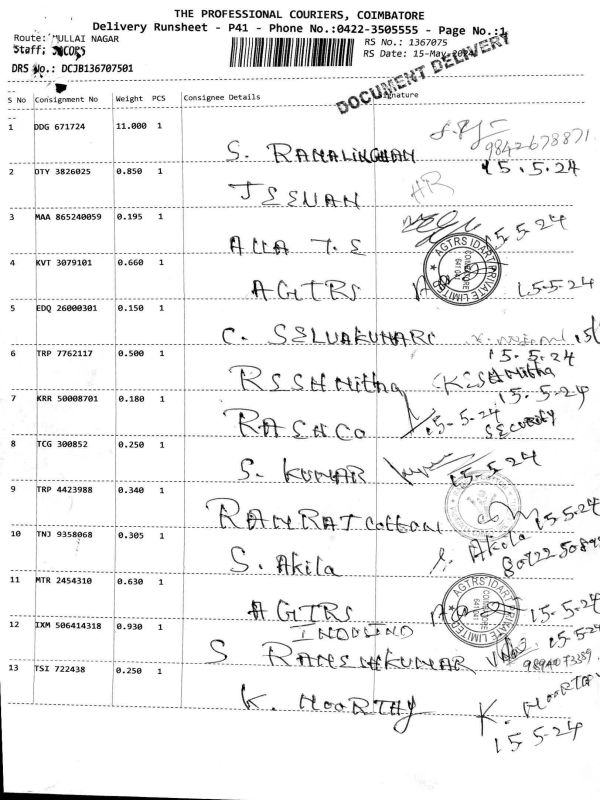 THE PROFESSIONAL COURIERS, COIMBATORE
Delivery Runsheet - P41 - Phone No.:0422-3505555 - Page No.:1
Route: MULLAI NAGAR
RS No.: 1367075
Staff: JACOBS
RS Date: 15-May-2024
DRS No.: DCJB136707501
DOCUMENT DELIVERY
S No Consignment No Weight PCS Consignee Details Signature
1 DDG 671724 11.000 1
9842678871
S. RAMALINGHAM 15.5.24
2 OTY 3826025 0.850 1
HR
JEEVAN
3 MAA 865240059 0.195 1
15.5.24
ALLA T.S
4 KVT 3079101 0.660 1
AGTRS IDART PRIVATE LIMITED COIMBATORE
AGTRS 15-5-24
5 EDQ 26000301 0.150 1
C. SELVAKUMAR
6 TRP 7762117 0.500 1
15.5.24
RSSHMitha
7 KRR 50008701 0.180 1
15-5-24
RASHCO 15-5-24 SECURITY
8 TCG 300852 0.250 1
S. KUMAR 15-5-24
9 TRP 4423988 0.340 1
RAMRAJ Cotton 15.5.24
10 TNJ 9358068 0.305 1
S. Akila
S. Akila
11 MTR 2454310 0.630 1
AGTRS IDART PRIVATE LIMITED COIMBATORE
AGTRS 15-5-24
12 IXM 506414318 0.930 1
INDUSIND
15-5-24
S RAMESHKUMAR
9894073389
13 TSI 722438 0.250 1
K. MOORTHY
K. MOORTHY
15 5-24